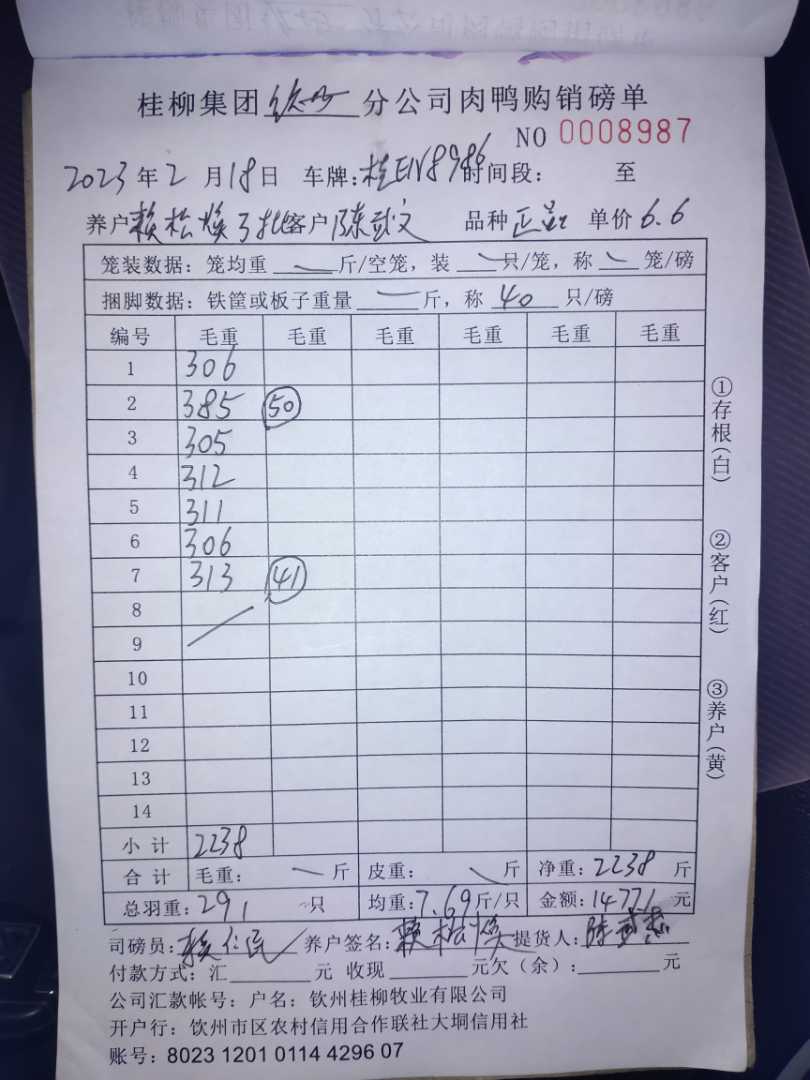 桂柳集团钦州分公司肉鸭购销磅单
NO 0008987
2023年2月18日 车牌:桂EN8986时间段: 至
养户赖松焕 客户陈武文 品种正品 单价6.6
笼装数据:笼均重 斤/空笼,装 只/笼,称 笼/磅
捆脚数据:铁筐或板子重量 斤,称 40 只/磅
编号 毛重 毛重 毛重 毛重 毛重 毛重
1 306
2 385 50
3 305
4 312
5 311
6 306
7 313 41
8
9
10
11
12
13
14
小计 2238
合计 毛重: 斤 皮重: 斤 净重:2238 斤
总羽重:291 只 均重:7.69斤/只 金额:14771元
司磅员: 养户签名:赖松焕 提货人:陈武
付款方式:汇 元 收现 元欠(余): 元
公司汇款帐号:户名:钦州桂柳牧业有限公司
开户行:钦州市区农村信用合作联社大垌信用社
账号:8023 1201 0114 4296 07
①存根(白)
②客户(红)
③养户(黄)